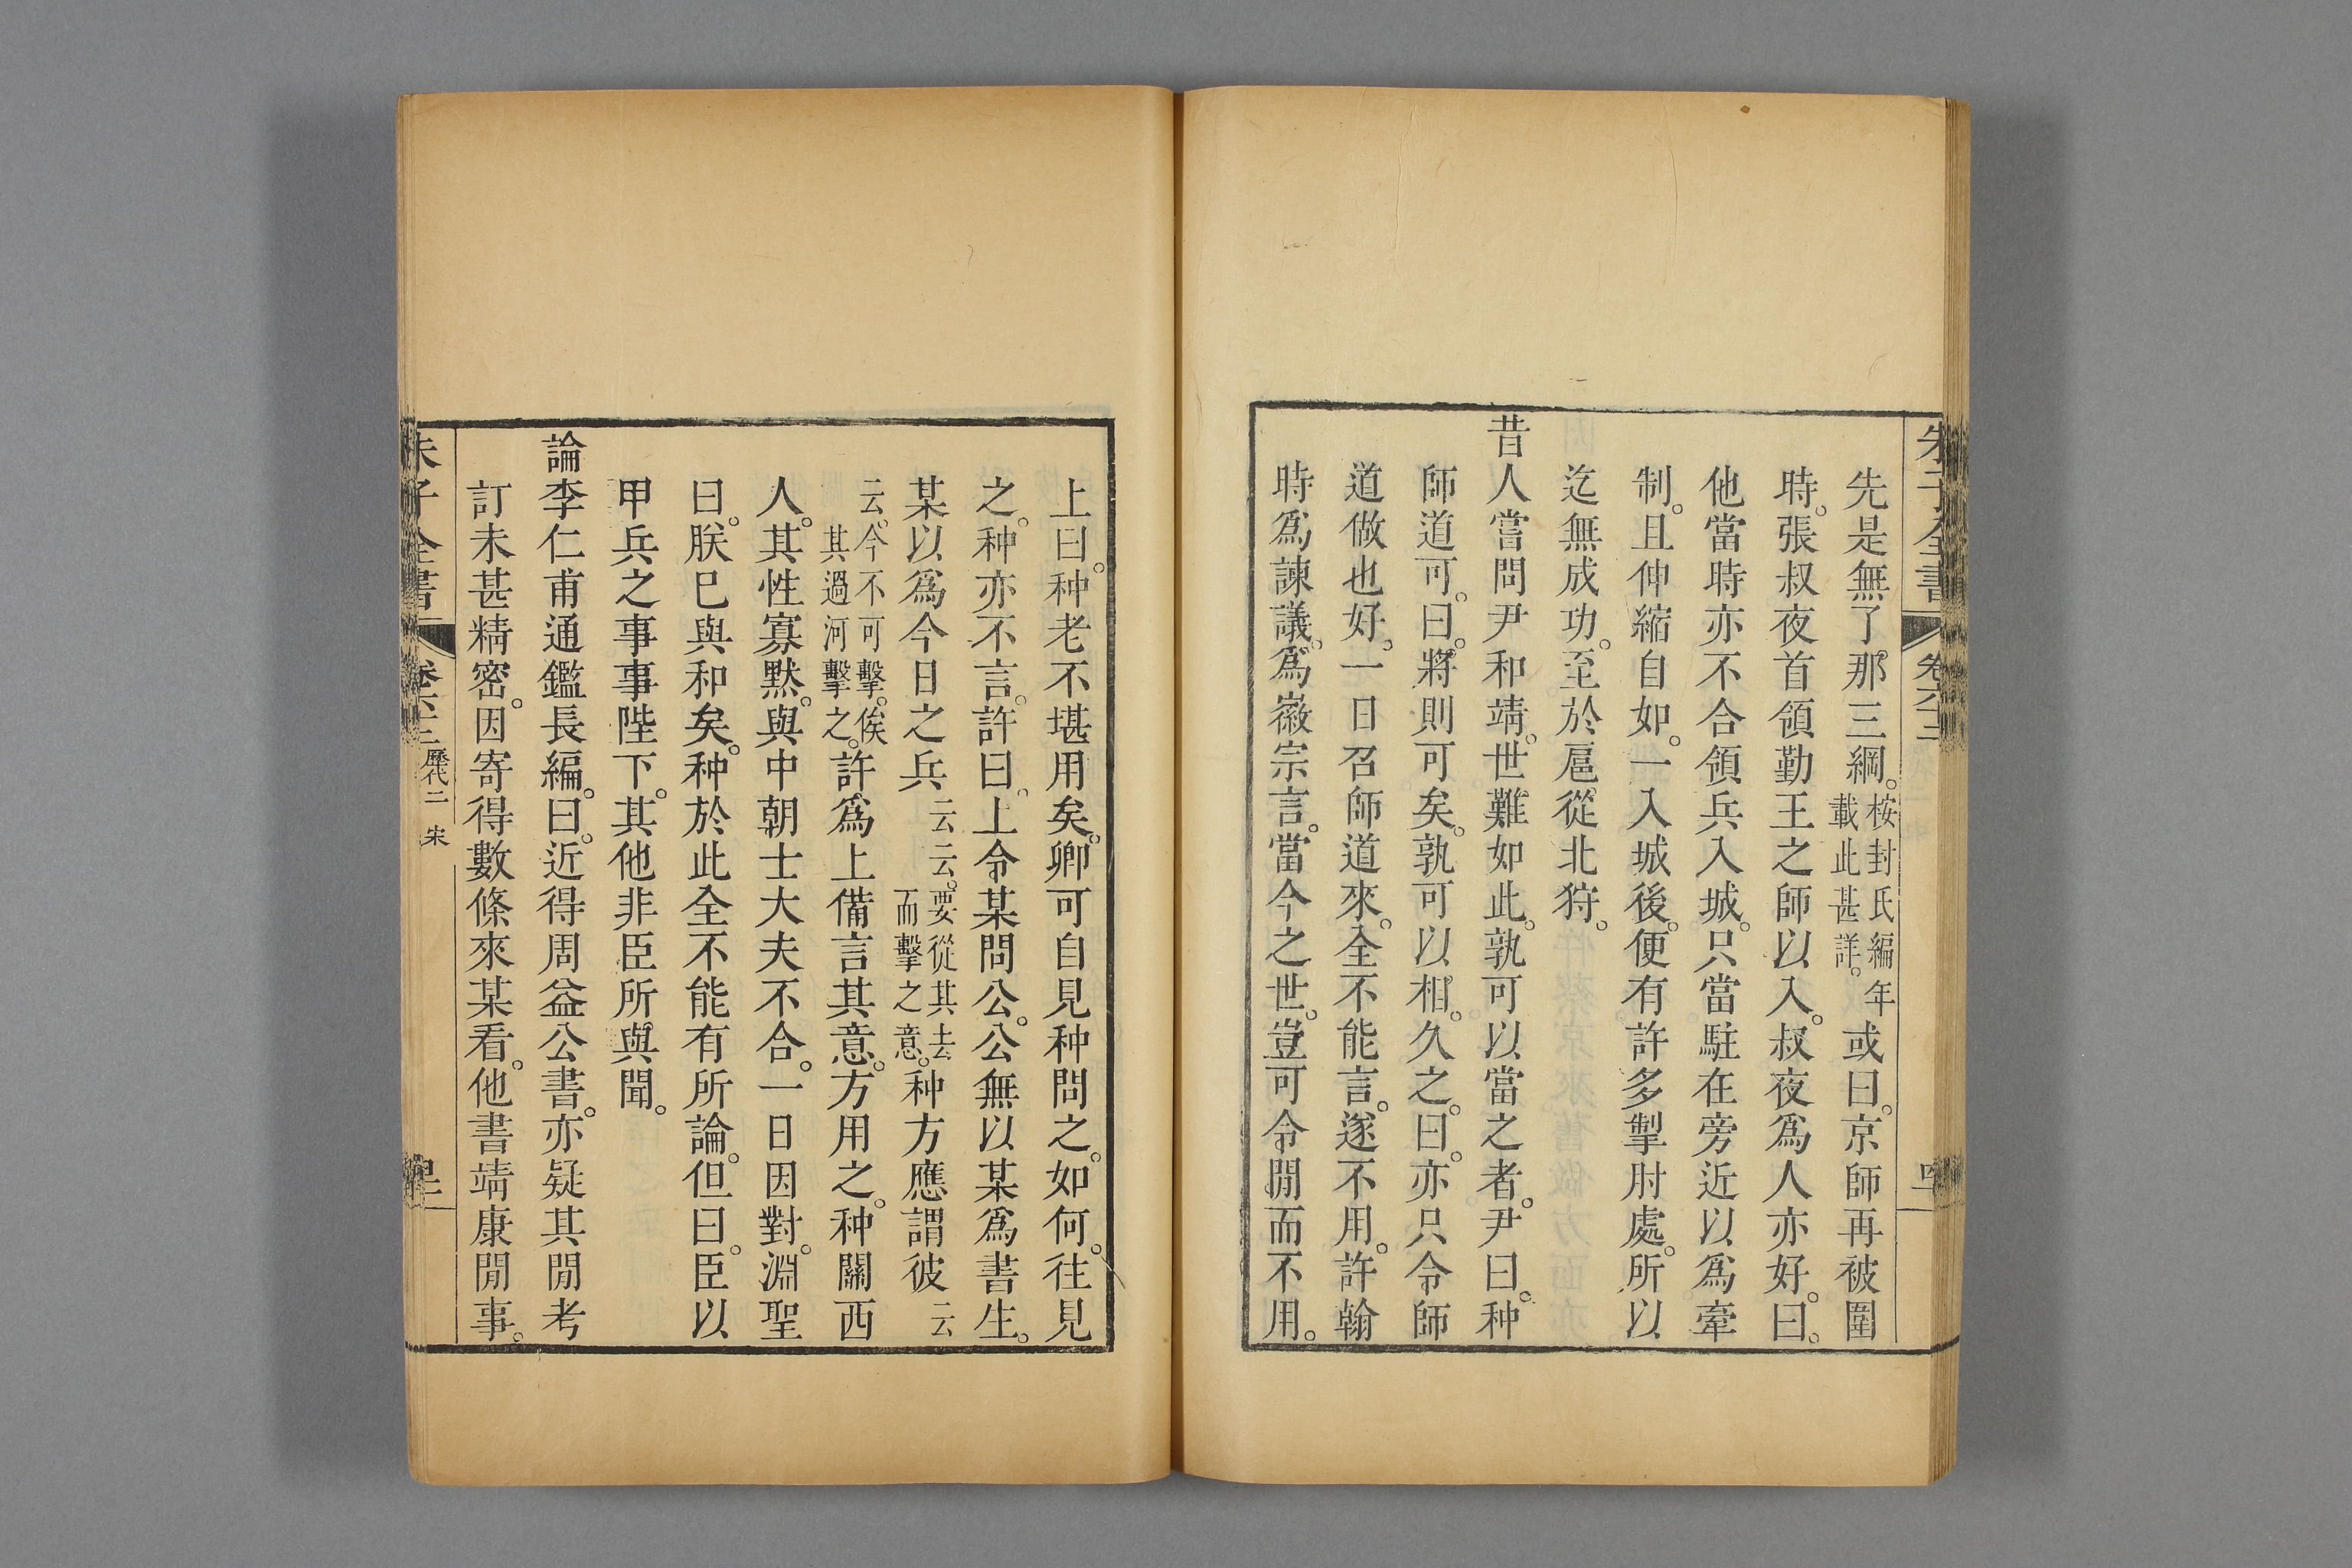 朱子全書 卷六十二
先是無了那三綱。桉封氏編年載此甚詳。或曰。京師再被圍
時。張叔夜首領勤王之師以入。叔夜爲人亦好。曰。
他當時亦不合領兵入城。只當駐在旁近以爲牽
制。且伸縮自如。一入城後。便有許多掣肘處。所以
迄無成功。至於扈從北狩。
昔人嘗問尹和靖。世難如此。孰可以當之者。尹曰。种
師道可。曰。將則可矣。孰可以相。久之。曰。亦只令師
道做也好。一日召師道來。全不能言。遂不用。許翰
時爲諫議。爲徽宗言。當今之世。豈可令閒而不用。
上曰。种老不堪用矣。卿可自見种問之。如何。往見
之。种亦不言。許曰。上令某問公。公無以某爲書生。
某以爲今日之兵云云。要從其去而擊之意。种方應謂彼云
云。今不可擊。俟其過河擊之。許爲上備言其意。方用之。种關西
人。其性寡默。與中朝士大夫不合。一日因對。淵聖
曰。朕已與和矣。种於此全不能有所論。但曰。臣以
甲兵之事事陛下。其他非臣所與聞。
論李仁甫通鑑長編。曰。近得周益公書。亦疑其閒考
訂未甚精密。因寄得數條來某看。他書靖康閒事。
朱子全書 卷六十二 歷代二 宋